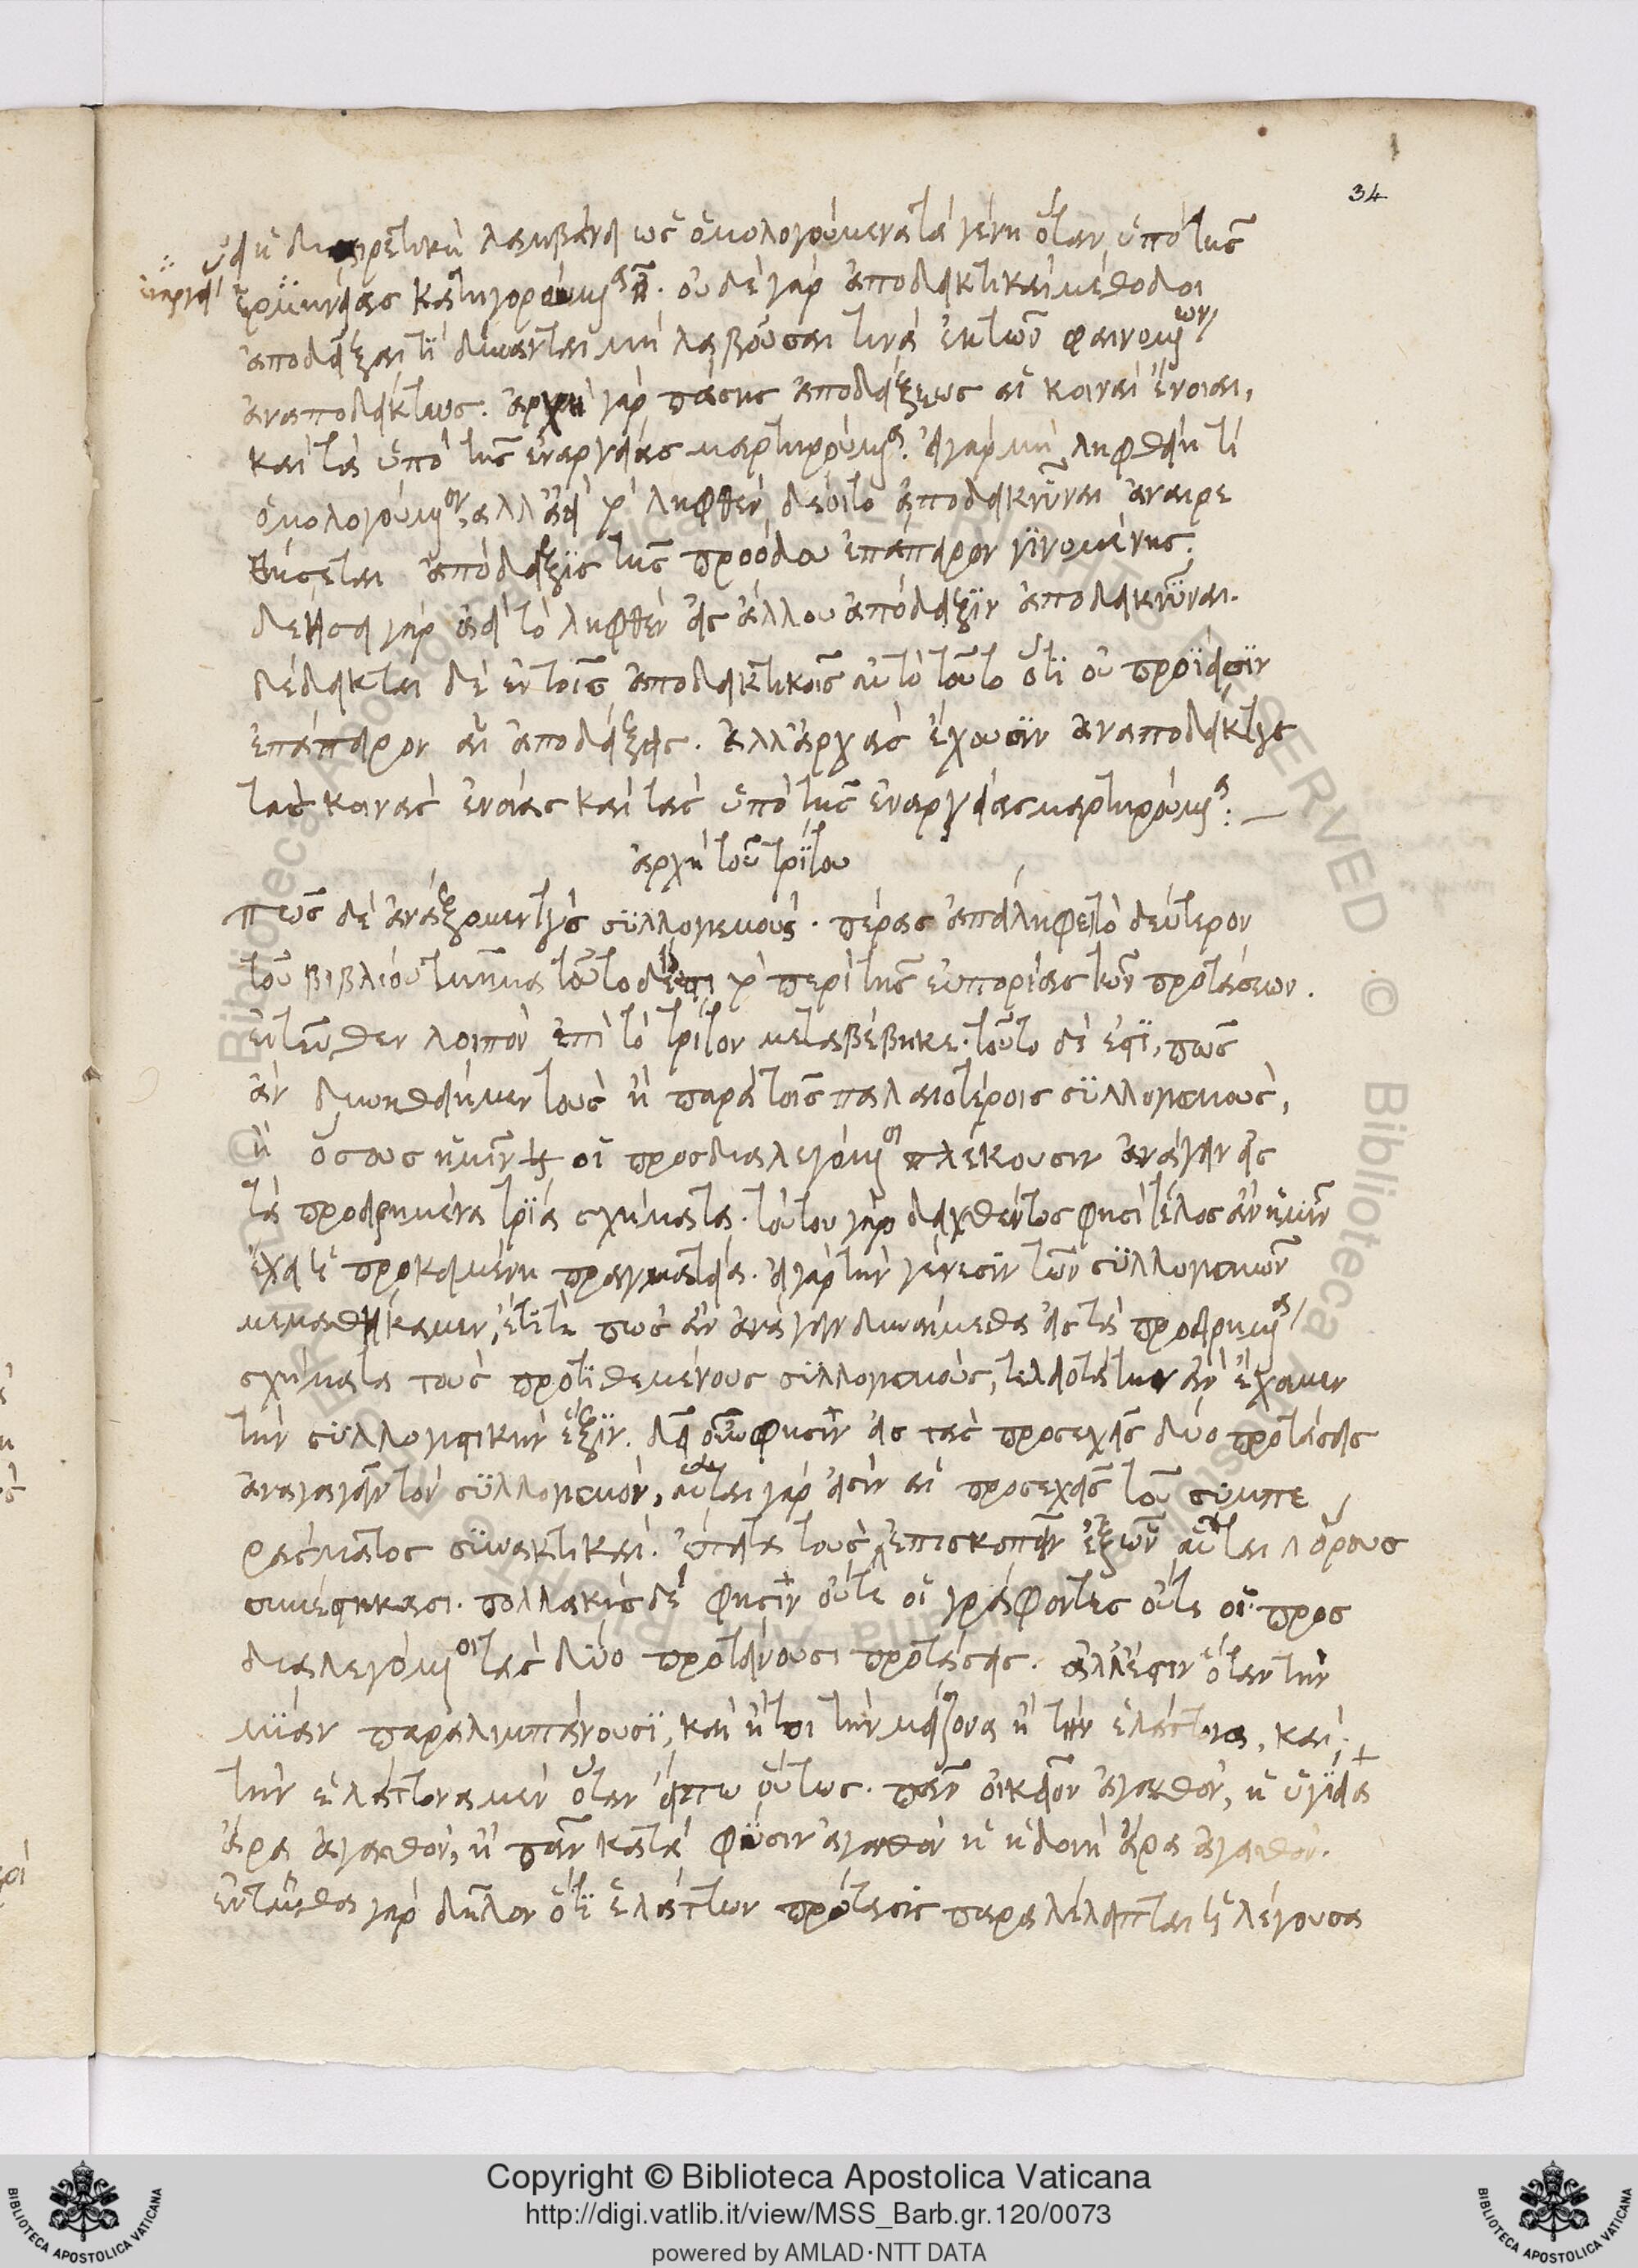 34
εἰ ἡ διαιρετικὴ λαμβάνει ὡς ὁμολογούμενα τὰ γένη ὅταν ὑπὸ τῆς
ἐναργεί
ἑρμηνείας κατηγορούμενα ἦ. οὐδὲ γὰρ ἀποδεικτικαὶ μέθοδοι
ἀποδεῖξαι τὶ δύνανται μὴ λαβοῦσαι τινὰ ἐκ τῶν φαινομένων
ἀναποδείκτως. ἀρχὴ γὰρ πάσης ἀποδείξεως αἱ κοιναὶ ἔνοιαι,
καὶ τὰ ὑπὸ τῆς ἐναργείας μαρτυρούμενα. εἰ γὰρ μὴ ληφθείη τί
ὁμολογούμενον, ἀλλ' ἀεὶ τὸ ληφθὲν δέοιτο ἀποδεικνύναι ἀναιρε
θήσεται ἀπόδειξις τῆς προόδου ἐπ' ἄπειρον γινομένης.
δεήσει γὰρ ἀεὶ τὸ ληφθὲν εἰς ἄλλου ἀπόδειξιν ἀποδεικνύναι.
δέδεικται δὲ ἐν τοῖς ἀποδεικτικοῖς αὐτὸ τοῦτο ὅτι οὐ προΐασιν
ἐπ' ἄπειρον αἱ ἀποδείξεις. ἀλλ' ἀρχὰς ἔχουσιν ἀναποδείκτους
τὰς κοινὰς ἐνοίας καὶ τὰς ὑπὸ τῆς ἐναργείας μαρτυρούμενας:
ἀρχὴ τοῦ τρίτου
πῶς δὲ ἀνάξομεν τοὺς συλλογισμούς. πέρας ἀπείληφε τὸ δεύτερον
τοῦ βιβλίου τμῆμα τοῦτο δέ ἐστι τὸ περὶ τῆς εὐπορίας τῶν προτάσεων.
ἐντεῦθεν λοιπὸν ἐπὶ τὸ τρίτον μεταβέβηκε. τοῦτο δέ ἐστι, πῶς
ἂν δυνηθείημεν τοὺς ἢ παρὰ τοῖς παλαιοτέροις συλλογισμούς,
ἢ ὅσους ἡμῖν οἱ προσδιαλεγόμενοι πλέκουσιν ἀνάγειν εἰς
τὰ προειρημένα τρία σχήματα. τούτου γὰρ δειχθέντος φησὶ τέλος ἂν ἡμῖν
ἔχει ἡ προκειμένη πραγματεία. εἰ γὰρ τὴν γένεσιν τῶν συλλογισμῶν
μεμαθήκαμεν, ἔτι τε πῶς ἂν ἀνάγειν δυναίμεθα εἰς τὰ προειρημένα
σχήματα τοὺς προτιθεμένους συλλογισμούς, τελειοτάτην ἂν ἔχοιμεν
τὴν συλλογιστικὴν ἕξιν. δεῖ οὖν φησὶν εἰς τὰς προσεχεῖς δύο προτάσεις
ἀναγαγεῖν τὸν συλλογισμόν, αὗται γάρ εἰσιν αἱ προσεχεῖς τοῦ συμπε
ράσματος συνακτικαί. ἔπειτα τοὺς ἐπισκοπεῖν ἐξ ὧν αὗται ὅρους
συνέστηκασι. πολλάκις δέ φησιν οὔτε οἱ γράφοντες οὔτε οἱ προσ
διαλεγόμενοι τὰς δύο προτείνουσι προτάσεις. ἀλλ' ἔστιν ὅταν τὴν
μίαν παραλιμπάνουσι, καὶ ἤτοι τὴν μείζονα ἢ τὴν ἐλάττονα, καὶ
τὴν ἐλάττονα μὲν ὅταν εἴπω οὕτως. πᾶν οἰκεῖον ἀγαθόν, ἡ ὑγίεια
ἄρα ἀγαθόν, ἢ πᾶν κατὰ φύσιν ἀγαθὸν ἡ ἡδονὴ ἄρα ἀγαθόν.
ἐνταῦθα γὰρ δῆλον ὅτι ἐλάττων πρότασις παραλέλειπται ἡ λέγουσα
Copyright © Biblioteca Apostolica Vaticana
http://digi.vatlib.it/view/MSS_Barb.gr.120/0073
powered by AMLAD·NTT DATA
BIBLIOTECA APOSTOLICA VATICANA
BIBLIOTECA APOSTOLICA VATICANA